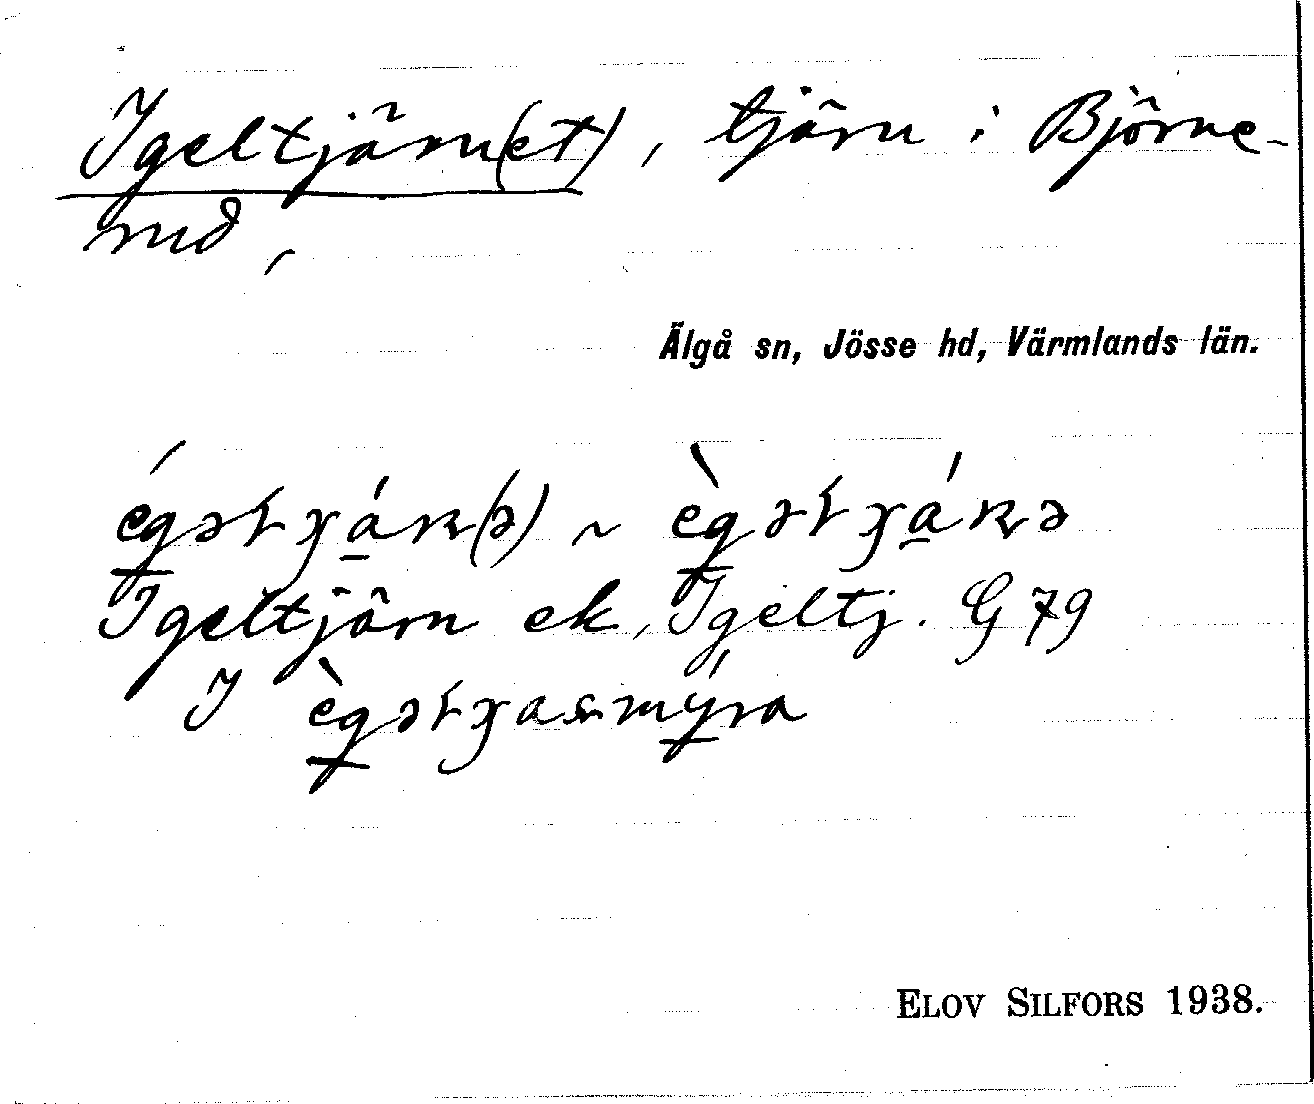 Igeltjärn(et), tjärn i Björne-
rud,
Älgå sn, Jösse hd, Värmlands län.
Igeltjärn ek, Igeltj. G 79
I
ELOV SILFORS 1938.